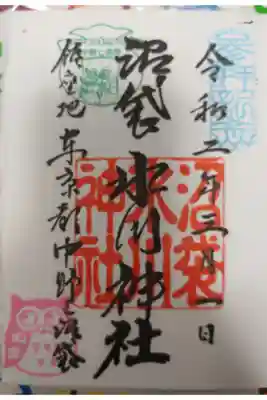 令和二年三月一日
沼袋 氷川神社
鎮座地 東京都中野沼袋
沼袋
氷川
神社